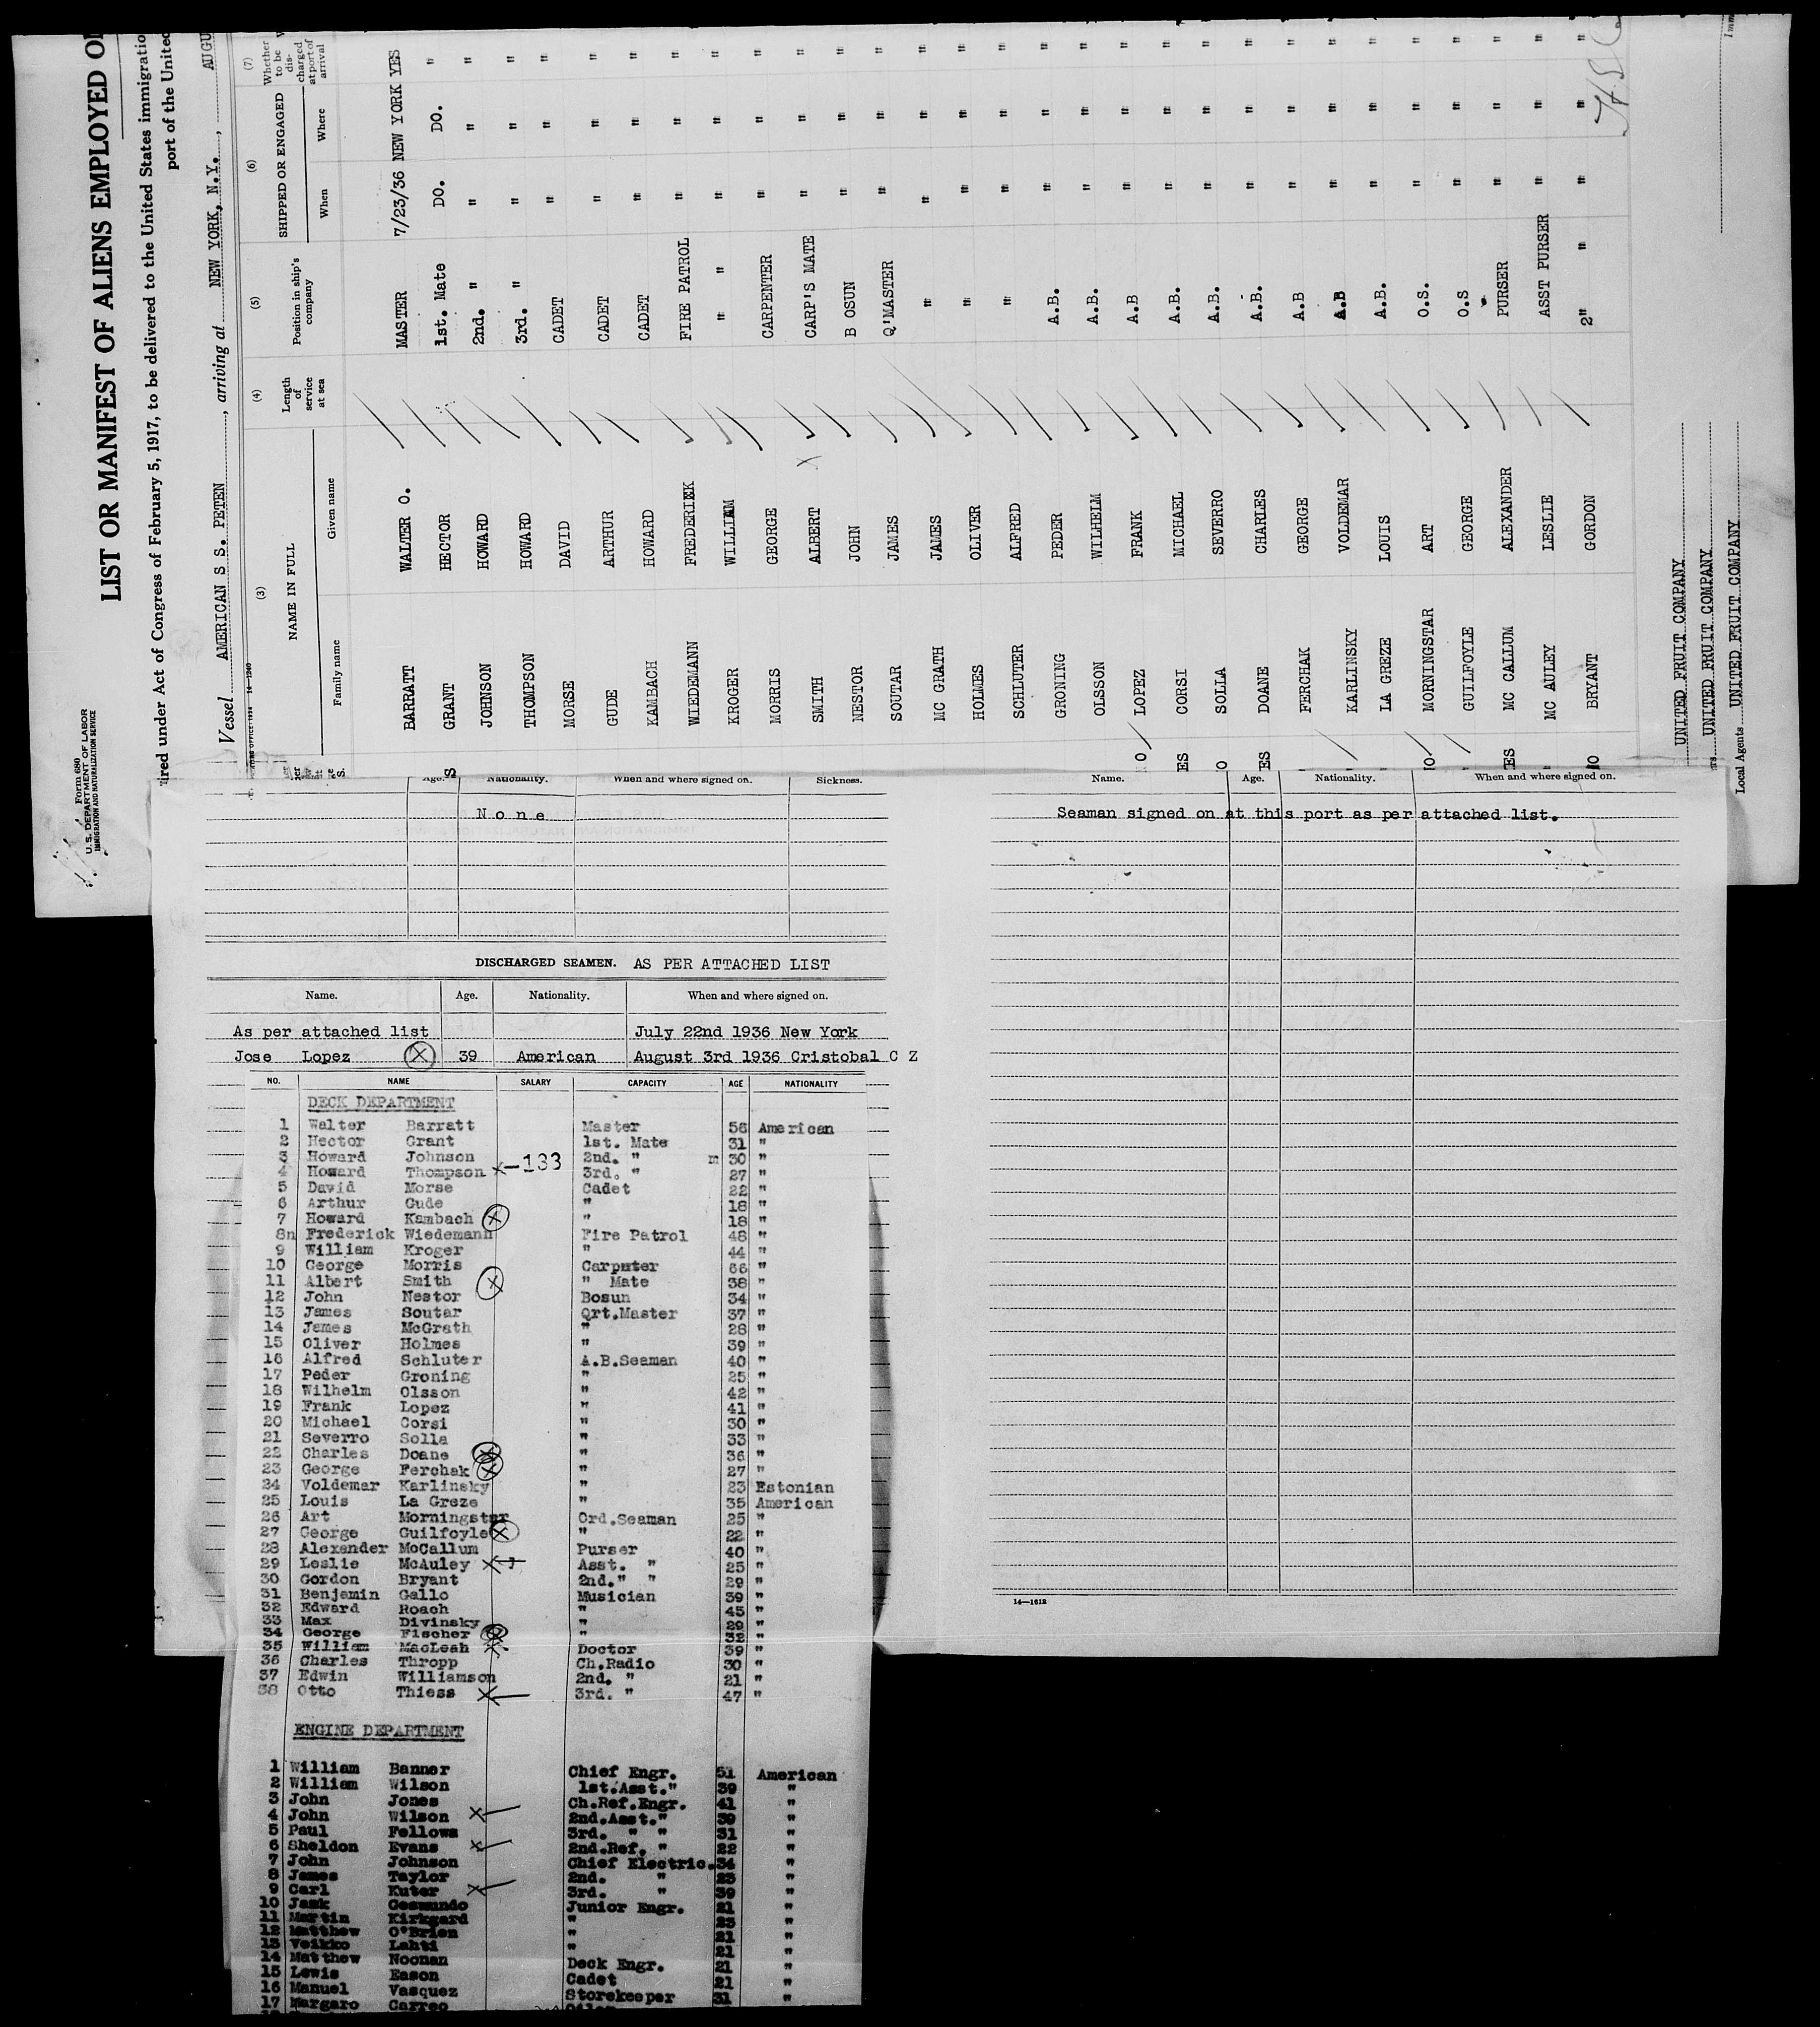 Form 680
U. S. DEPARTMENT OF LABOR
IMMIGRATION AND NATURALIZATION SERVICE
LIST OR MANIFEST OF ALIENS EMPLOYED ON
ired under Act of Congress of February 5, 1917, to be delivered to the United States immigratio
port of the United
Vessel AMERICAN S S. PETEN, arriving at NEW YORK, N.Y., AUGU
14-1240
(3) (4) (5) (6) (7)
NAME IN FULL Length of service at sea Position in ship's company SHIPPED OR ENGAGED Whether to be dis- charged at port of arrival
Family name Given name When Where
BARRATT WALTER O. MASTER 7/23/36 NEW YORK YES
GRANT HECTOR 1st. Mate DO. DO. "
JOHNSON HOWARD 2nd. " " " "
THOMPSON HOWARD 3rd. " " " "
MORSE DAVID CADET " " "
GUDE ARTHUR CADET " " "
KAMBACH HOWARD CADET " " "
WIEDEMANN FREDERIEK FIRE PATROL " " "
KROGER WILLIAM " " " " "
MORRIS GEORGE CARPENTER " " "
SMITH ALBERT CARP'S MATE " " "
NESTOR JOHN B OSUN " " "
SOUTAR JAMES Q'MASTER " " "
MC GRATH JAMES " " " "
HOLMES OLIVER " " " "
SCHLUTER ALFRED " " " "
GRONING PEDER A.B. " " "
OLSSON WILHELM A.B. " " "
LOPEZ FRANK A.B " " "
CORSI MICHAEL A.B. " " "
SOLLA SEVERRO A.B. " " "
DOANE CHARLES A.B. " " "
FERCHAK GEORGE A.B " " "
KARLINSKY VOLDEMAR A.B " " "
LA GREZE LOUIS A.B. " " "
MORNINGSTAR ART O.S. " " "
GUILFOYLE GEORGE O.S " " "
MC CALLUM ALEXANDER PURSER " " "
MC AULEY LESLIE ASST PURSER " " "
BRYANT GORDON 2" " " " "
UNITED FRUIT COMPANY
UNITED FRUIT COMPANY
Local Agents UNITED FRUIT COMPANY
Age. Nationality. When and where signed on. Sickness.
None
DISCHARGED SEAMEN. AS PER ATTACHED LIST
Name. Age. Nationality. When and where signed on.
As per attached list July 22nd 1936 New York
Jose Lopez X 39 American August 3rd 1936 Cristobal C Z
NO. NAME SALARY CAPACITY AGE NATIONALITY
DECK DEPARTMENT
1 Walter Barratt Master 56 American
2 Hector Grant 1st. Mate 31 "
3 Howard Johnson 2nd. " m 30 "
4 Howard Thompson x-133 3rd. " 27 "
5 David Morse Cadet 22 "
6 Arthur Gude " 18 "
7 Howard Kambach X " 18 "
8n Frederick Wiedemann Fire Patrol 48 "
9 William Kroger " 44 "
10 George Morris Carpnter 66 "
11 Albert Smith X " Mate 38 "
12 John Nestor Bosun 34 "
13 James Soutar Qrt.Master 37 "
14 James McGrath " 28 "
15 Oliver Holmes " 39 "
16 Alfred Schluter A.B.Seaman 40 "
17 Peder Groning " 25 "
18 Wilhelm Olsson " 42 "
19 Frank Lopez " 41 "
20 Michael Corsi " 30 "
21 Severro Solla " 33 "
22 Charles Doane X " 36 "
23 George Ferchak X " 27 "
24 Voldemar Karlinsky " 23 Estonian
25 Louis La Greze " 35 American
26 Art Morningstar Ord.Seaman 25 "
27 George Guilfoyle X " 22 "
28 Alexander McCallum Purser 40 "
29 Leslie McAuley X Asst. " 25 "
30 Gordon Bryant 2nd." " 29 "
31 Benjamin Gallo Musician 39 "
32 Edward Roach " 45 "
33 Max Divinsky " 29 "
34 George Fischer X " 32 "
35 William MacLeah X Doctor 39 "
36 Charles Thropp Ch.Radio 30 "
37 Edwin Williamson 2nd. " 21 "
38 Otto Thiess X 3rd. " 47 "
ENGINE DEPARTMENT
1 William Banner Chief Engr. 51 American
2 William Wilson 1st.Asst." 39 "
3 John Jones Ch.Ref.Engr. 41 "
4 John Wilson X 2nd.Asst." 39 "
5 Paul Fellows 3rd. " " 31 "
6 Sheldon Evans X 2nd.Ref. " 22 "
7 John Johnson Chief Electric. 34 "
8 James Taylor 2nd. " 23 "
9 Carl Kuter X 3rd. " 39 "
10 Jack Gesmundo Junior Engr. 21 "
11 Martin Kirkgard " 23 "
12 Matthew O'Brien " 21 "
13 Veikko Lahti " 21 "
14 Matthew Noonan Deck Engr. 21 "
15 Lewis Eason Cadet 21 "
16 Manuel Vasquez Storekeeper 31 "
17 Margaro Carreo
Name. Age. Nationality. When and where signed on.
Seaman signed on at this port as per attached list.
14-1612